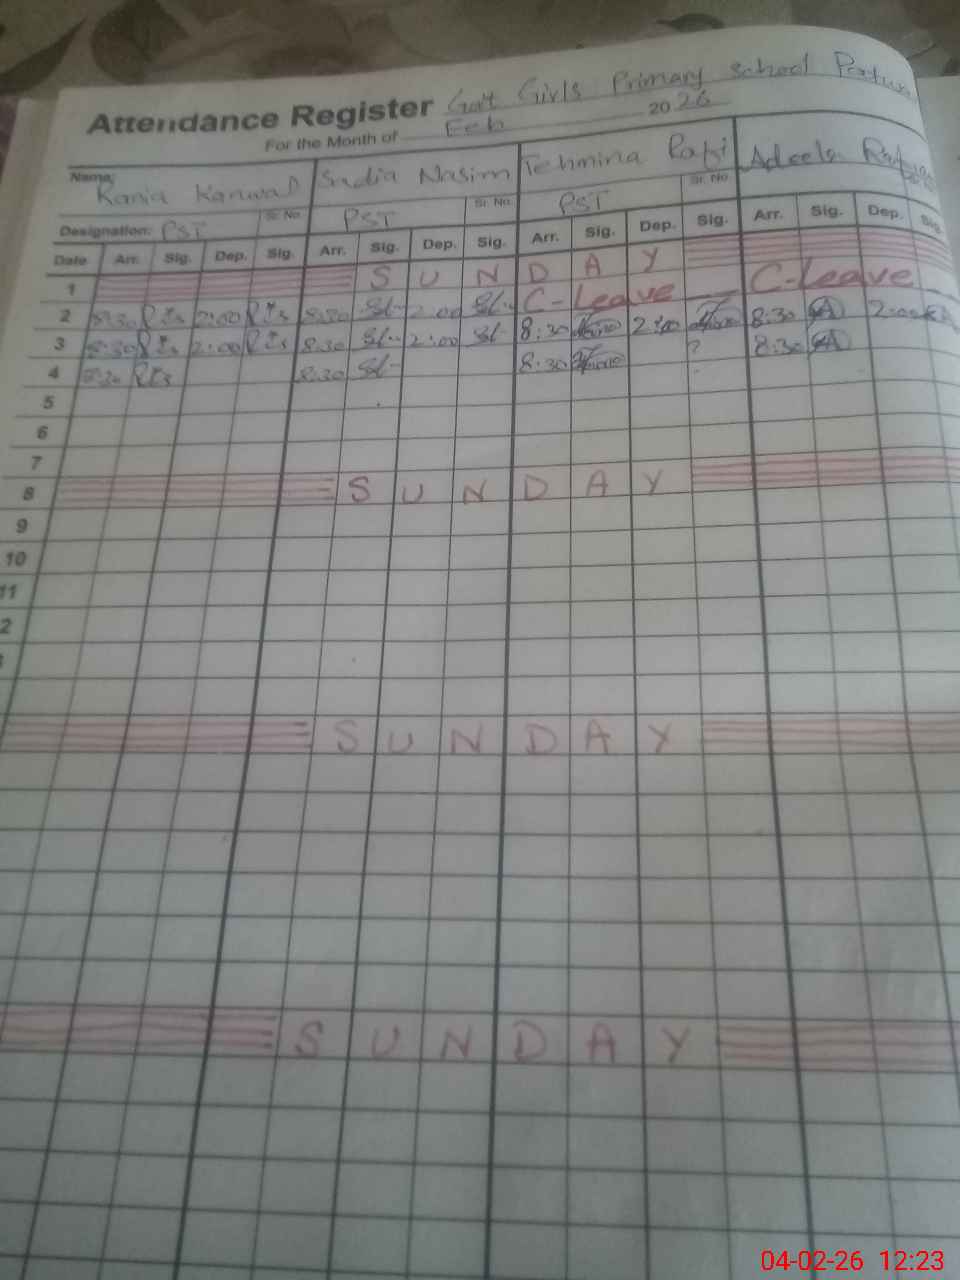 Attendance Register Govt Girls Primary School
For the Month of Feb 2026
Name: Rania Kanwal Sadia Nasim Tehmina Rafi Adeela
Sr. No. Sr. No. Sr. No.
Designation: PST PST PST
Date Arr. Sig. Dep. Sig. Arr. Sig. Dep. Sig. Arr. Sig. Dep. Sig. Arr. Sig. Dep. Sig.
1 S U N D A Y
2 8:30 2:00 8:30 2:00 C-Leave C-Leave
3 8:30 2:00 8:30 2:00 8:30 2:00 8:30 2:00
4 8:30 8:30 8:30 ? 8:30
5
6
7
8 S U N D A Y
9
10
11
2
S U N D A Y
S U N D A Y
04-02-26 12:23